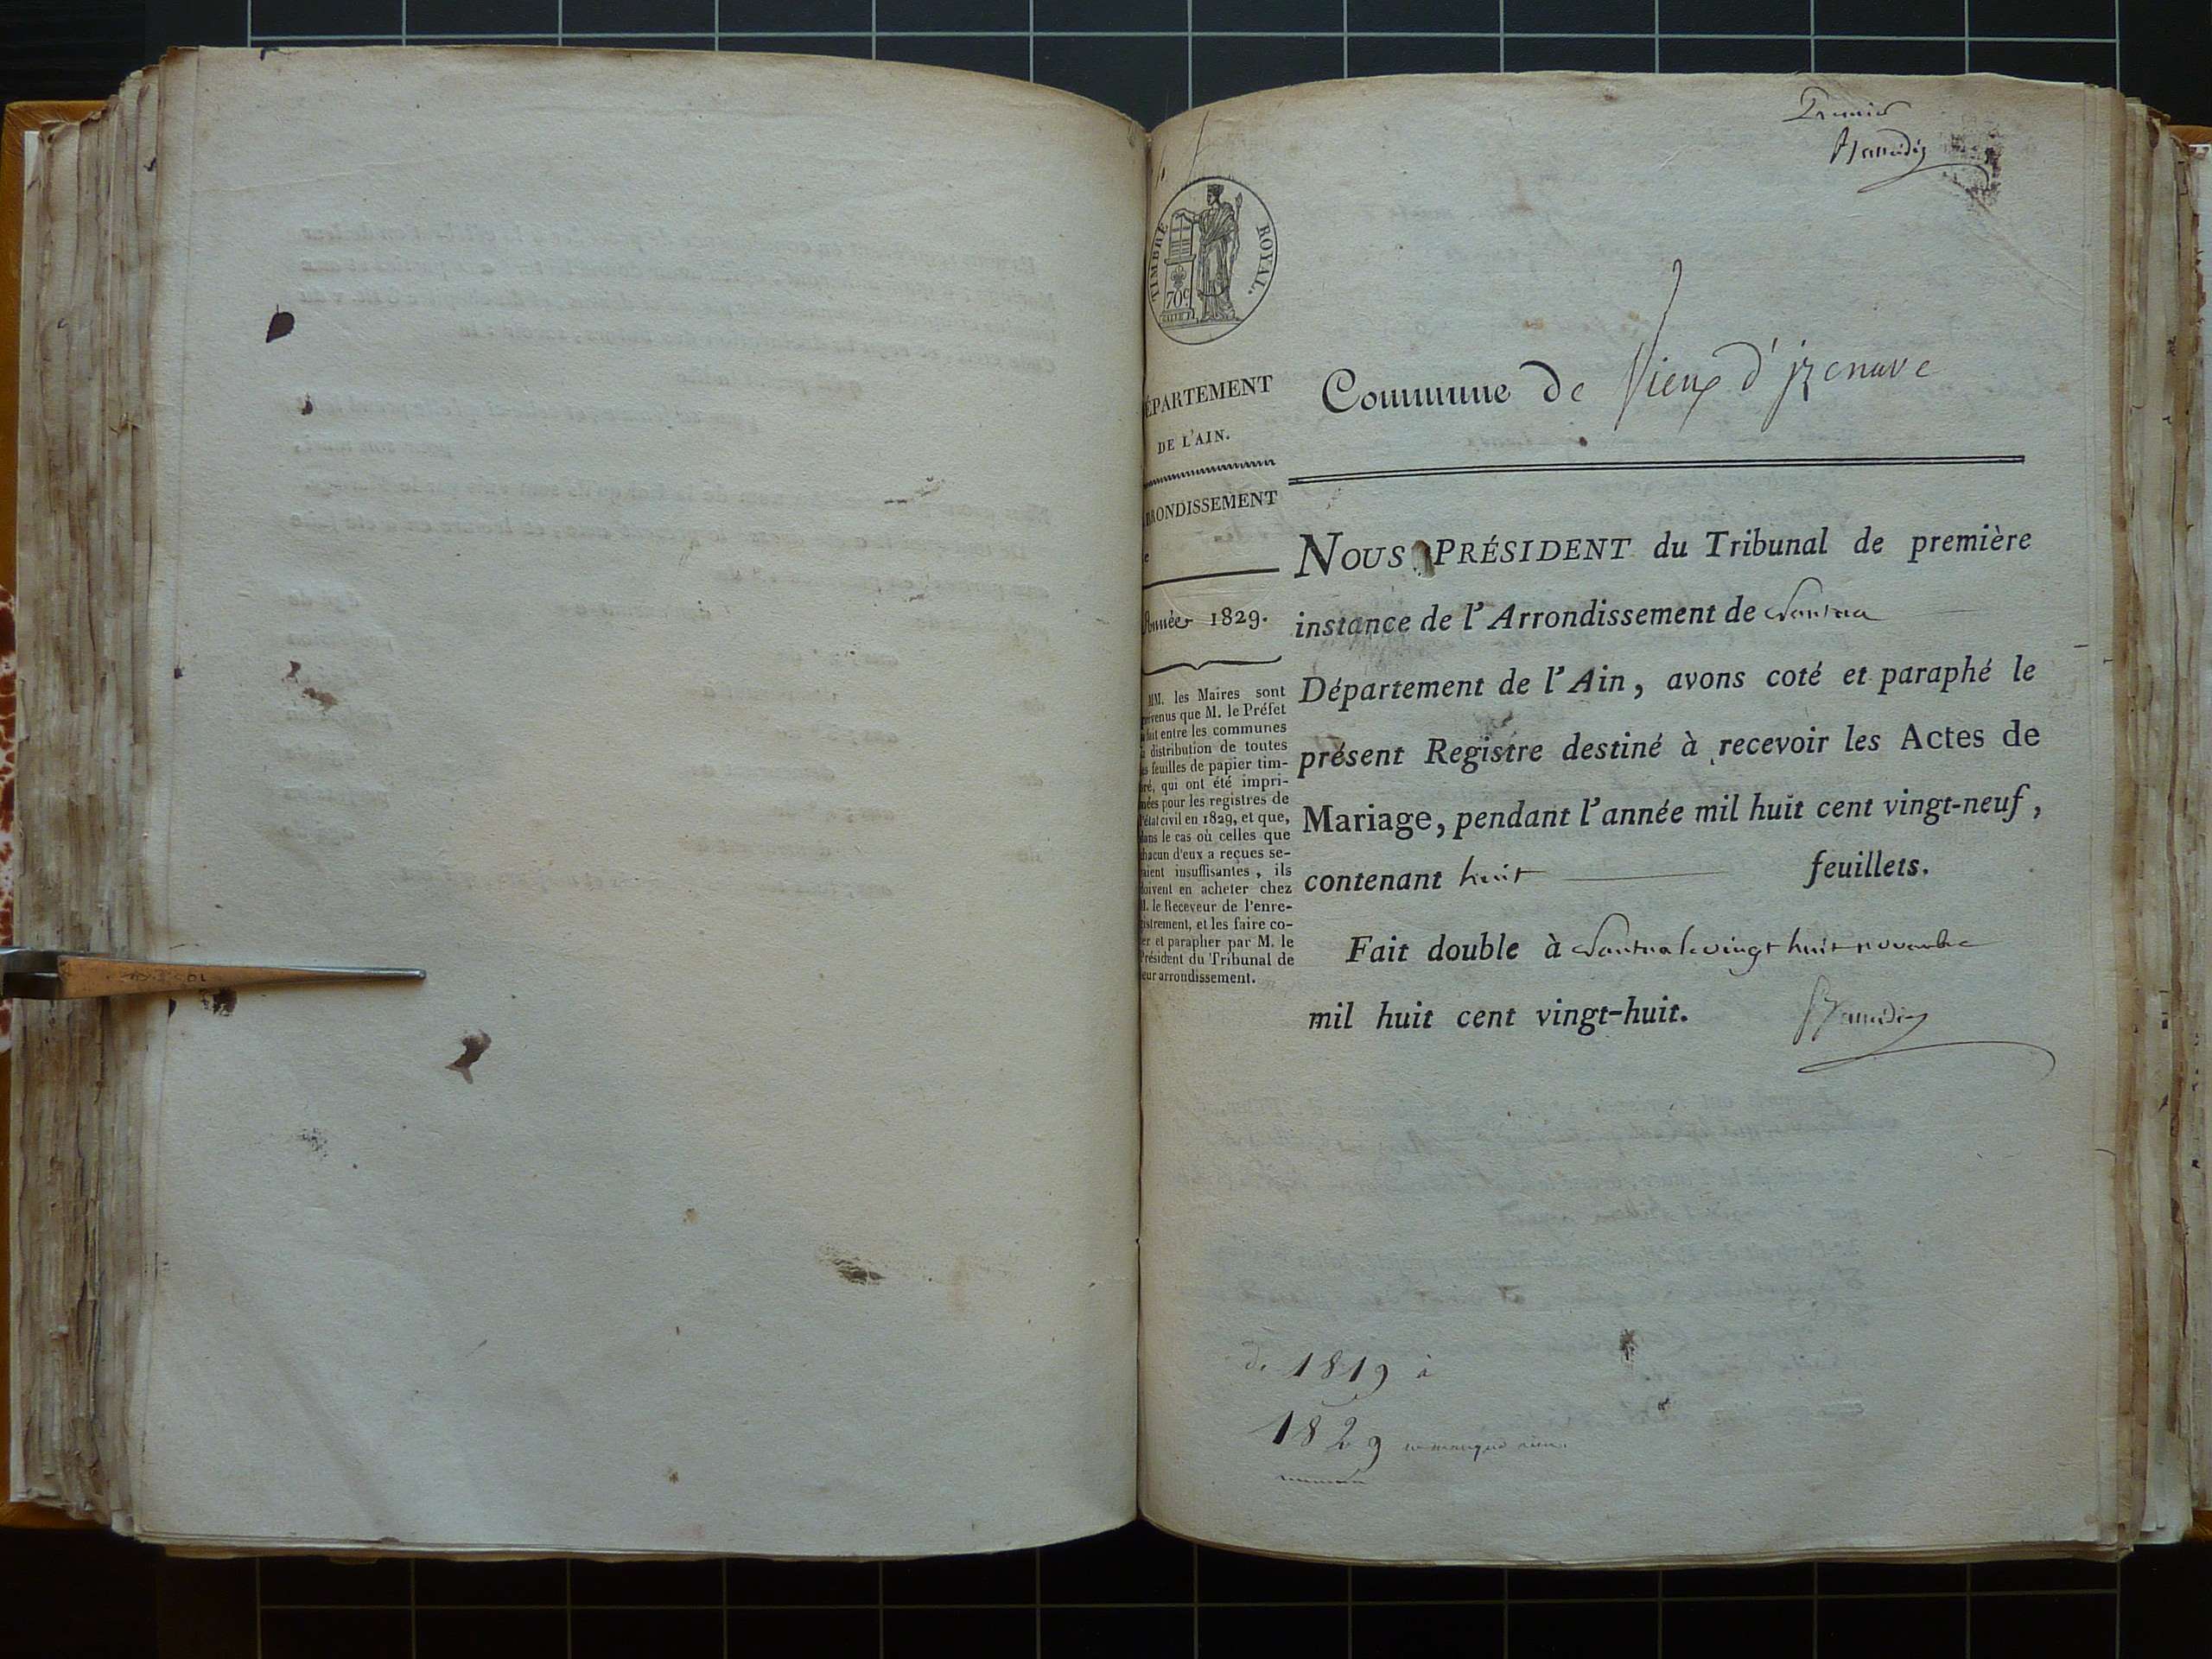 Premier
TIMBRE ROYAL.
70c
ÉPARTEMENT
DE L'AIN.
RONDISSEMENT
e
Année 1829.
MM. les Maires sont
prévenus que M. le Préfet
a fait entre les communes
la distribution de toutes
les feuilles de papier tim-
bré, qui ont été impri-
mées pour les registres de
l'état civil en 1829, et que,
dans le cas où celles que
chacun d'eux a reçues se-
raient insuffisantes, ils
doivent en acheter chez
M. le Receveur de l'enre-
gistrement, et les faire co-
ter et parapher par M. le
Président du Tribunal de
leur arrondissement.
Commune de Vieux d'izenave
NOUS PRÉSIDENT du Tribunal de première
instance de l'Arrondissement de Nantua
Département de l'Ain, avons coté et paraphé le
présent Registre destiné à recevoir les Actes de
Mariage, pendant l'année mil huit cent vingt-neuf,
contenant huit feuillets.
Fait double à Nantua le vingt huit novembre
mil huit cent vingt-huit.
De 1819 à
1829 ne manque rien.